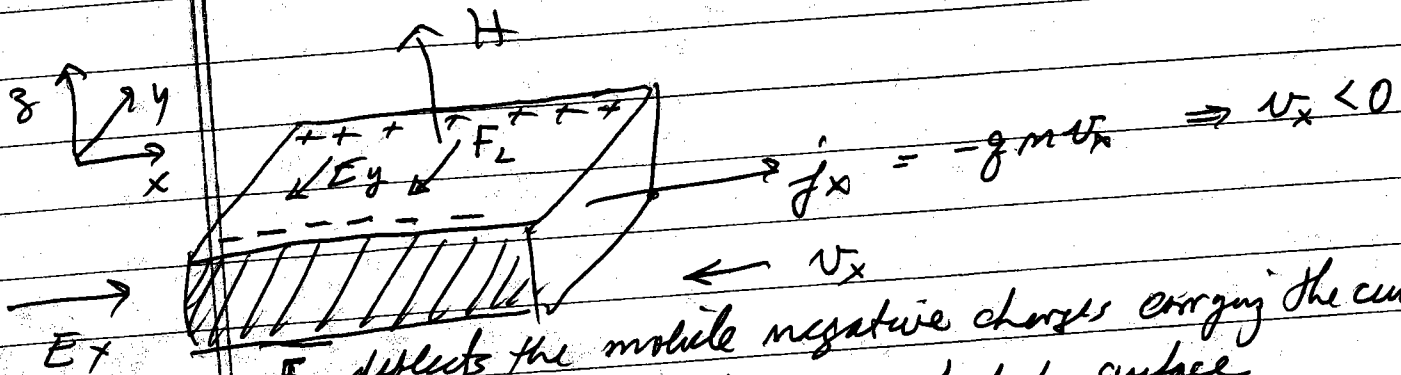 H
z y
x
+ + + + + + +
E_y F_L
j_x = -q n v_x ⇒ v_x < 0
- - - - - -
← v_x
E_x
deflects the mobile negative charges carrying the
surface